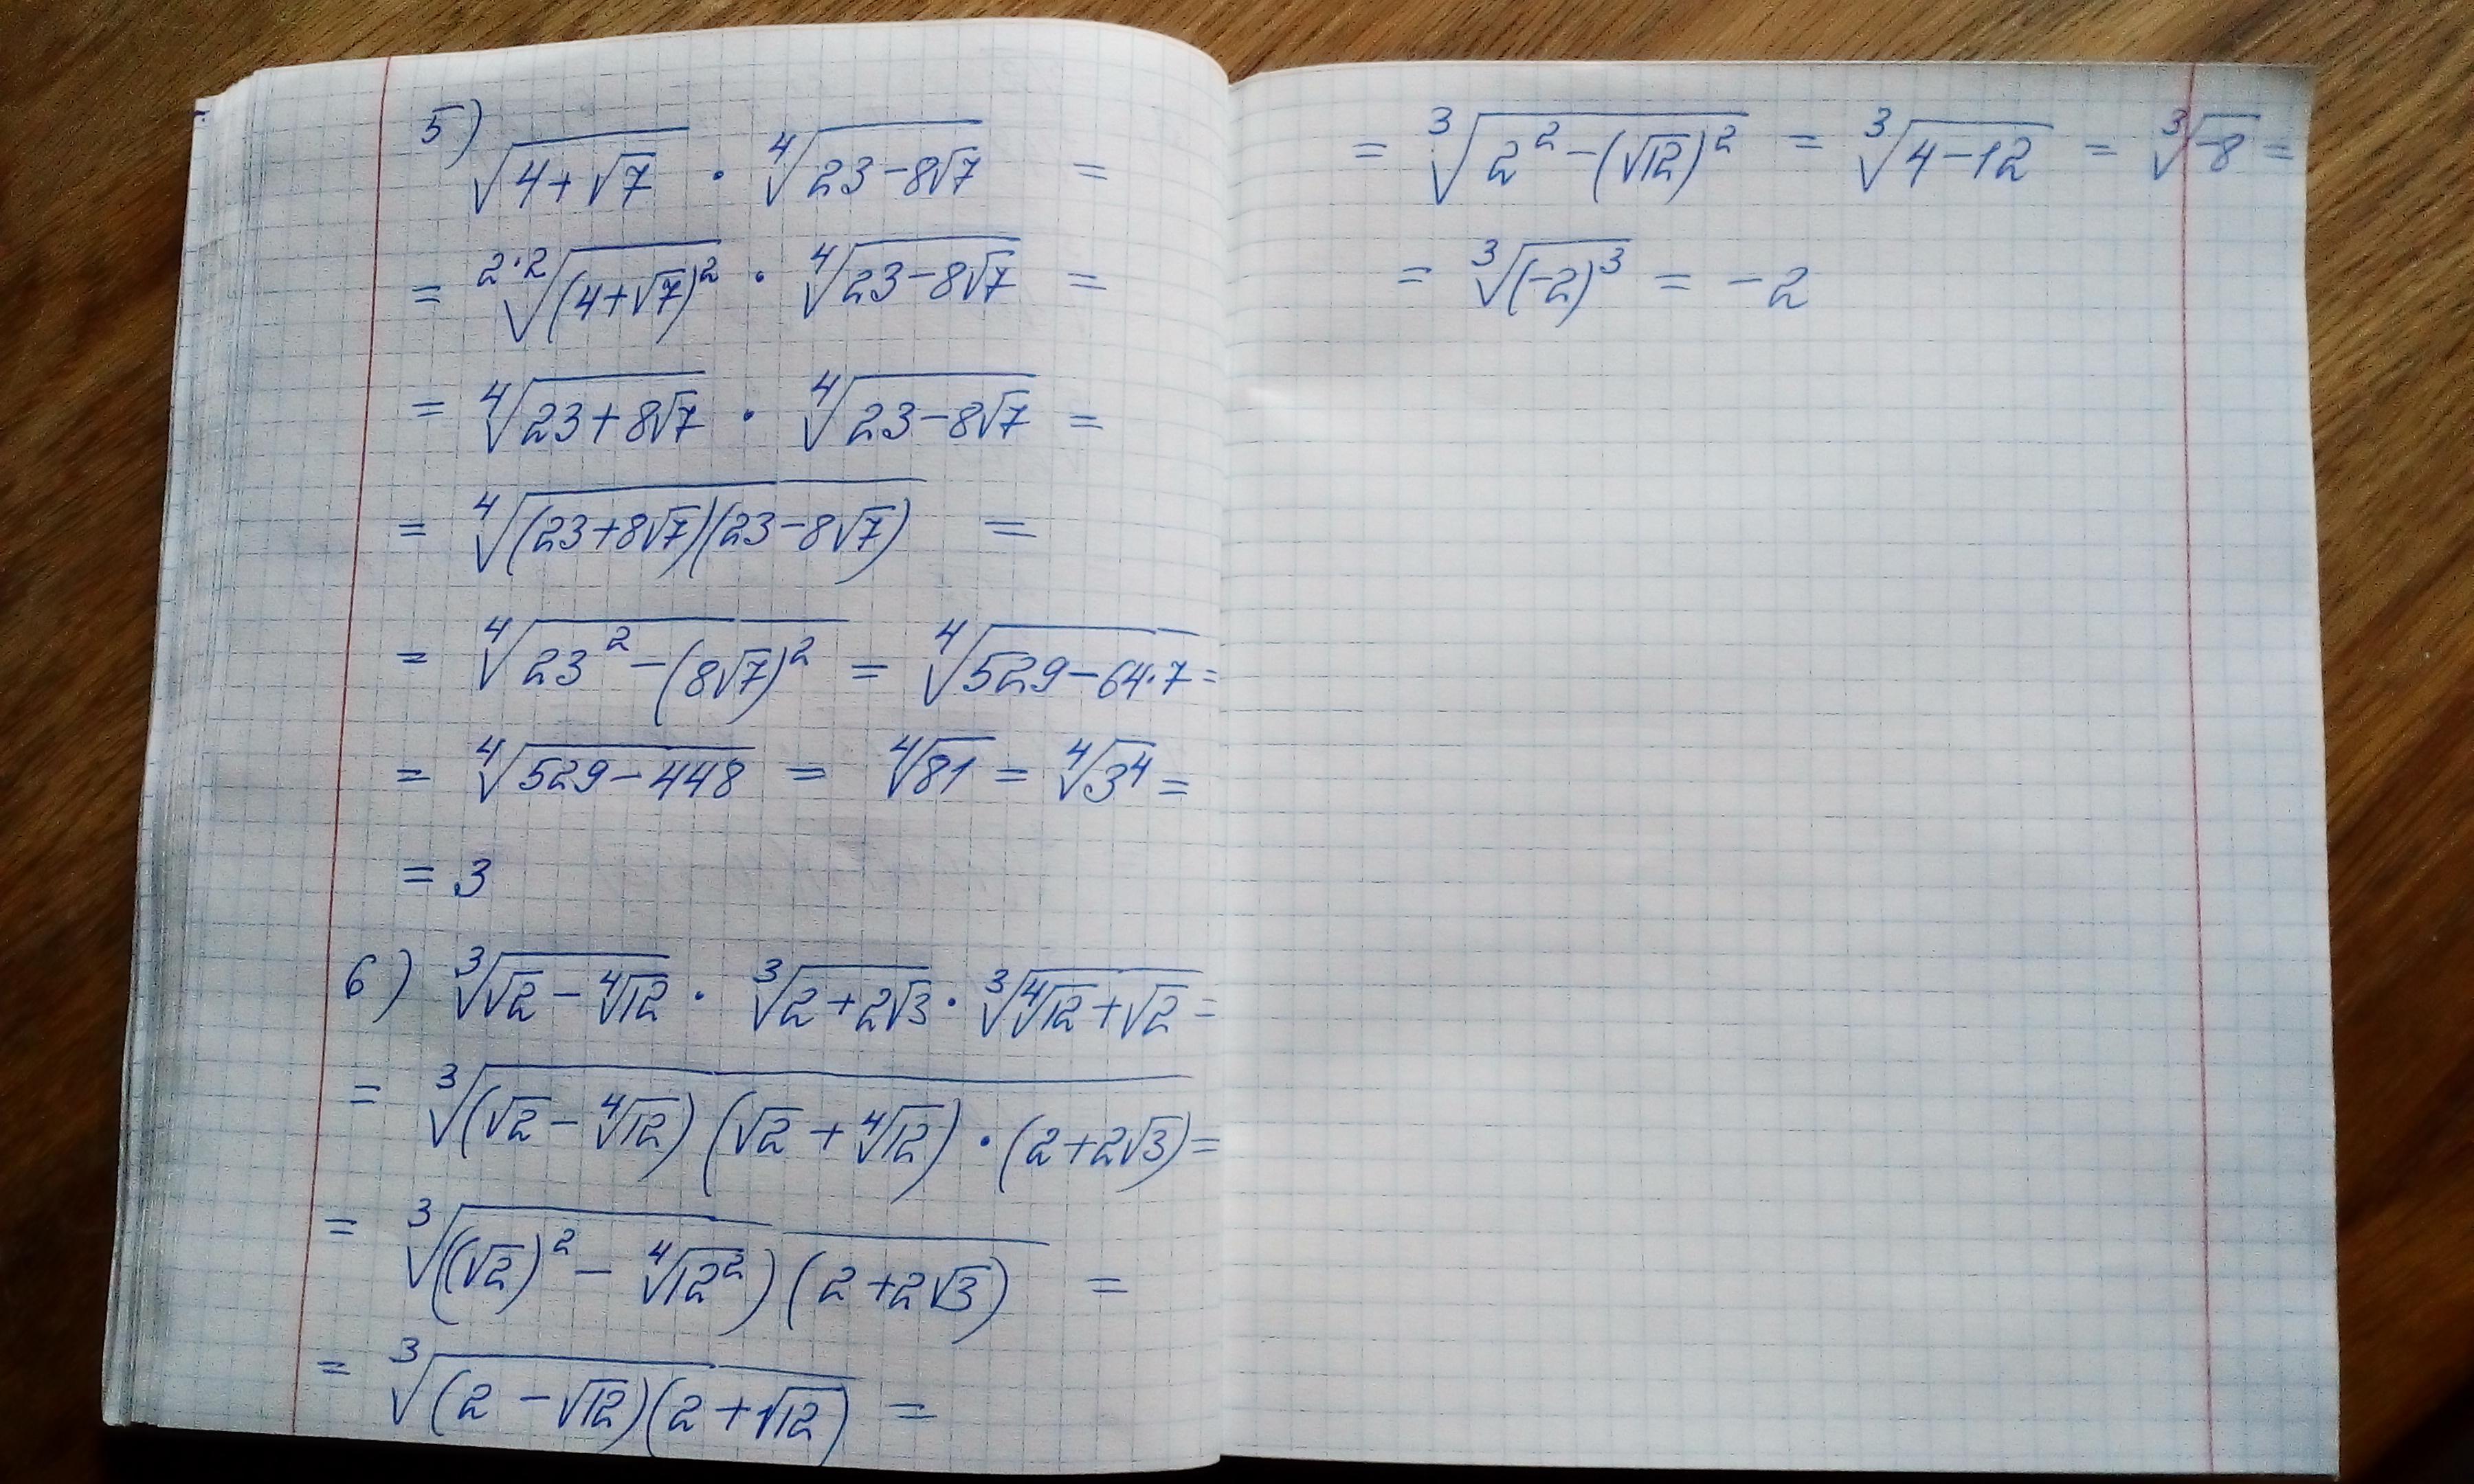 5) √(4+√7) · ⁴√(23-8√7) =
= ²·²√((4+√7)²) · ⁴√(23-8√7) =
= ⁴√(23+8√7) · ⁴√(23-8√7) =
= ⁴√((23+8√7)(23-8√7)) =
= ⁴√(23²-(8√7)²) = ⁴√(529-64·7) =
= ⁴√(529-448) = ⁴√81 = ⁴√(3⁴) =
= 3
6) ³√(√2-⁴√12) · ³√(2+2√3) · ³√(⁴√12+√2) =
= ³√((√2-⁴√12)(√2+⁴√12)·(2+2√3)) =
= ³√(((√2)²-⁴√(12²))(2+2√3)) =
= ³√((2-√12)(2+√12)) =
= ³√(2²-(√12)²) = ³√(4-12) = ³√(-8) =
= ³√((-2)³) = -2